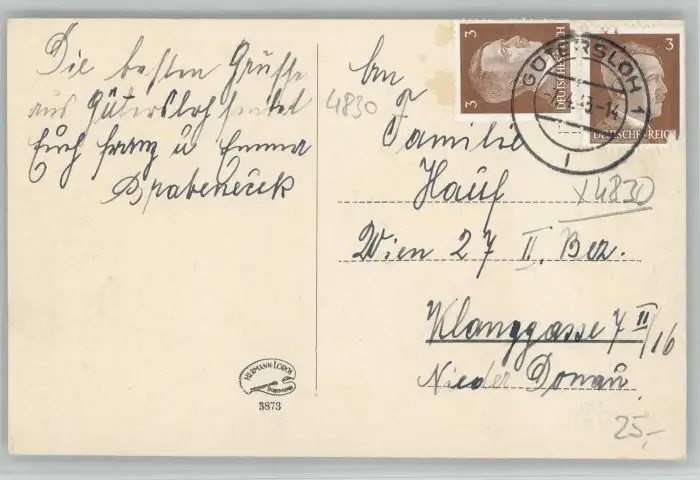 Die besten Grüsse
aus Gütersloh sendet
Euch Franz u Emma
Brabeneick
4830
An
Familie
Hauf
Wien 27 II. Bez.
Klanggasse 7 II/16
Nieder Donau
X4830
25,-
3
3
DEUTSCHES REICH
3
DEUTSCHES REICH
GÜTERSLOH 1
HERMANN LORCH
DORTMUND
3873